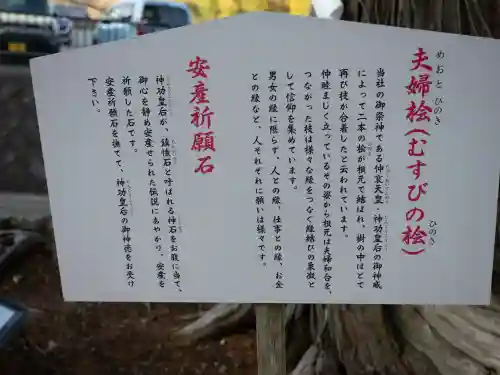 夫婦桧(むすびの桧)
めおとびのき
ひのき
当社の御祭神である仲哀天皇・神功皇后の御神威
によって二本の桧が根元で結ばれ、樹の中ほどで
再び枝が合着したと云われています。
仲睦まじく立っているその姿から根元は夫婦和合を、
つながった枝は様々な縁をつなぐ縁結びの象徴と
して信仰を集めています。
男女の縁に限らず、人との縁、仕事との縁、お金
との縁など、人それぞれに願いは様々です。
安産祈願石
神功皇后が、鎮懐石と呼ばれる神石をお腹に当て、
御心を静め安産せられた伝説にあやかり、安産を
祈願した石です。
安産祈願石を撫でて、神功皇后の御神徳をお受け
下さい。